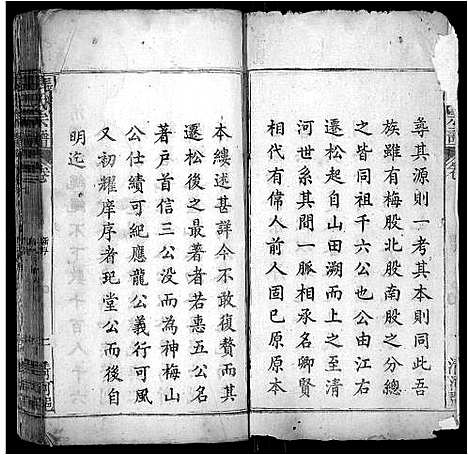 尋其源則一考其本則同此吾
族雖有梅股北股南股之分總
之皆同祖千六公也公由江右
遷松起自山田溯而上之至清
河世系其間一脈相承名卿賢
相代有偉人前人固已原原本
本縷述甚詳今不敢復贅而其
遷松後之最著者若惠五公名
著戶首信三公没而為神梅山
公仕績可紀應龍公義行可風
又初耀庠序者玘堂公而後自
明迄